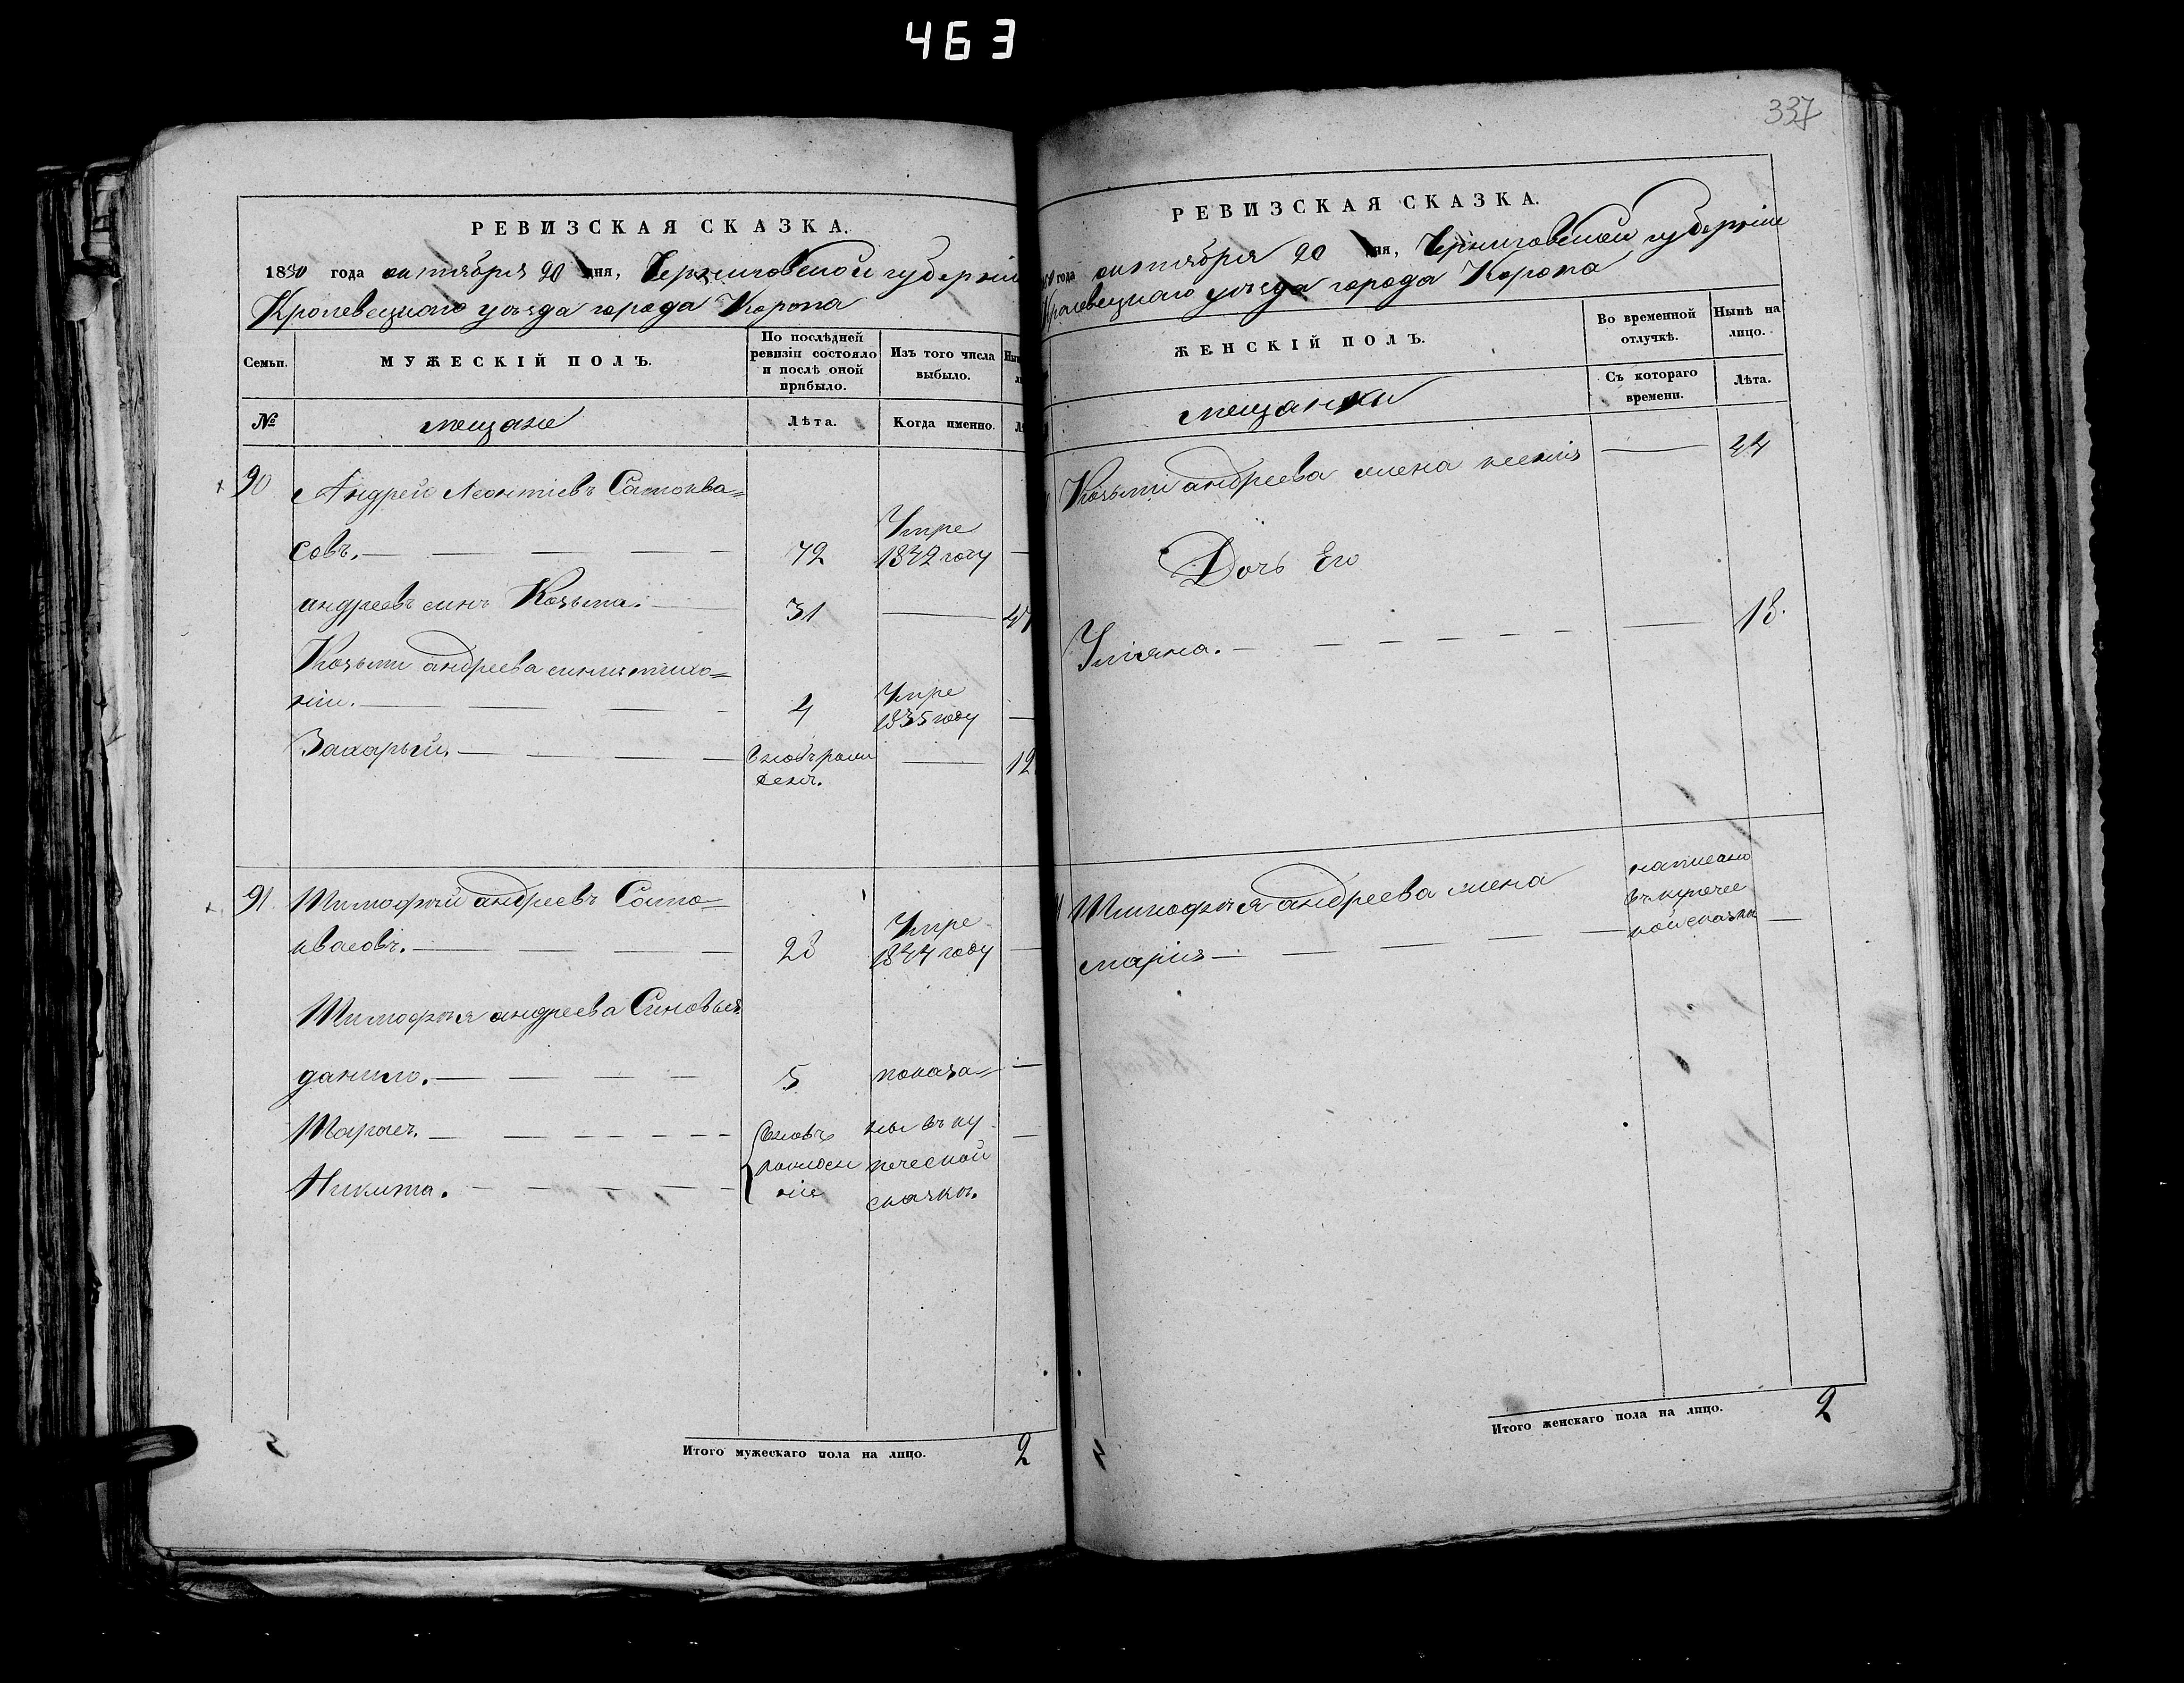 463
337
РЕВИЗСКАЯ СКАЗКА.
1850 года октября 20 дня, Черниговской губерніи
Кролевецкаго уѣзда города Коропа
Семьи.
МУЖЕСКІЙ ПОЛЪ.
По послѣдней ревизіи состояло и послѣ оной прибыло.
Изъ того числа выбыло.
№
мещане
Лѣта.
Когда именно.
90 Андрей Леонтіевъ Самоква=
совъ. 72 Умре 1842 году
андреевъ синъ Козьма. 31 47
Козьми андреева синъ
4 Умре 1835 году
Захарый. вновь рожденъ. 12
91 Тимофѣй андреевъ Само=
квасовъ. 28 Умре 1844 году
Тимофѣя андреева Синовья
данило. 5 показа=
Тарасъ. вновь ны въ ку
Никита. рожден ніе печеской сказкѣ.
Итого мужескаго пола на лицо. 2
РЕВИЗСКАЯ СКАЗКА.
года октября 20 дня, Черниговской губерніи
Кролевецкаго уѣзда города Коропа
ЖЕНСКІЙ ПОЛЪ.
Во временной отлучкѣ.
Нынѣ на лицо.
мещанки
Съ котораго времени.
Лѣта.
Козьми андреева жена ксенія 44
Дочь Его
Уліяна. 18.
Тимофѣя андреева жена
марія написано въ купечес кой сказкѣ
Итого женскаго пола на лицо. 2